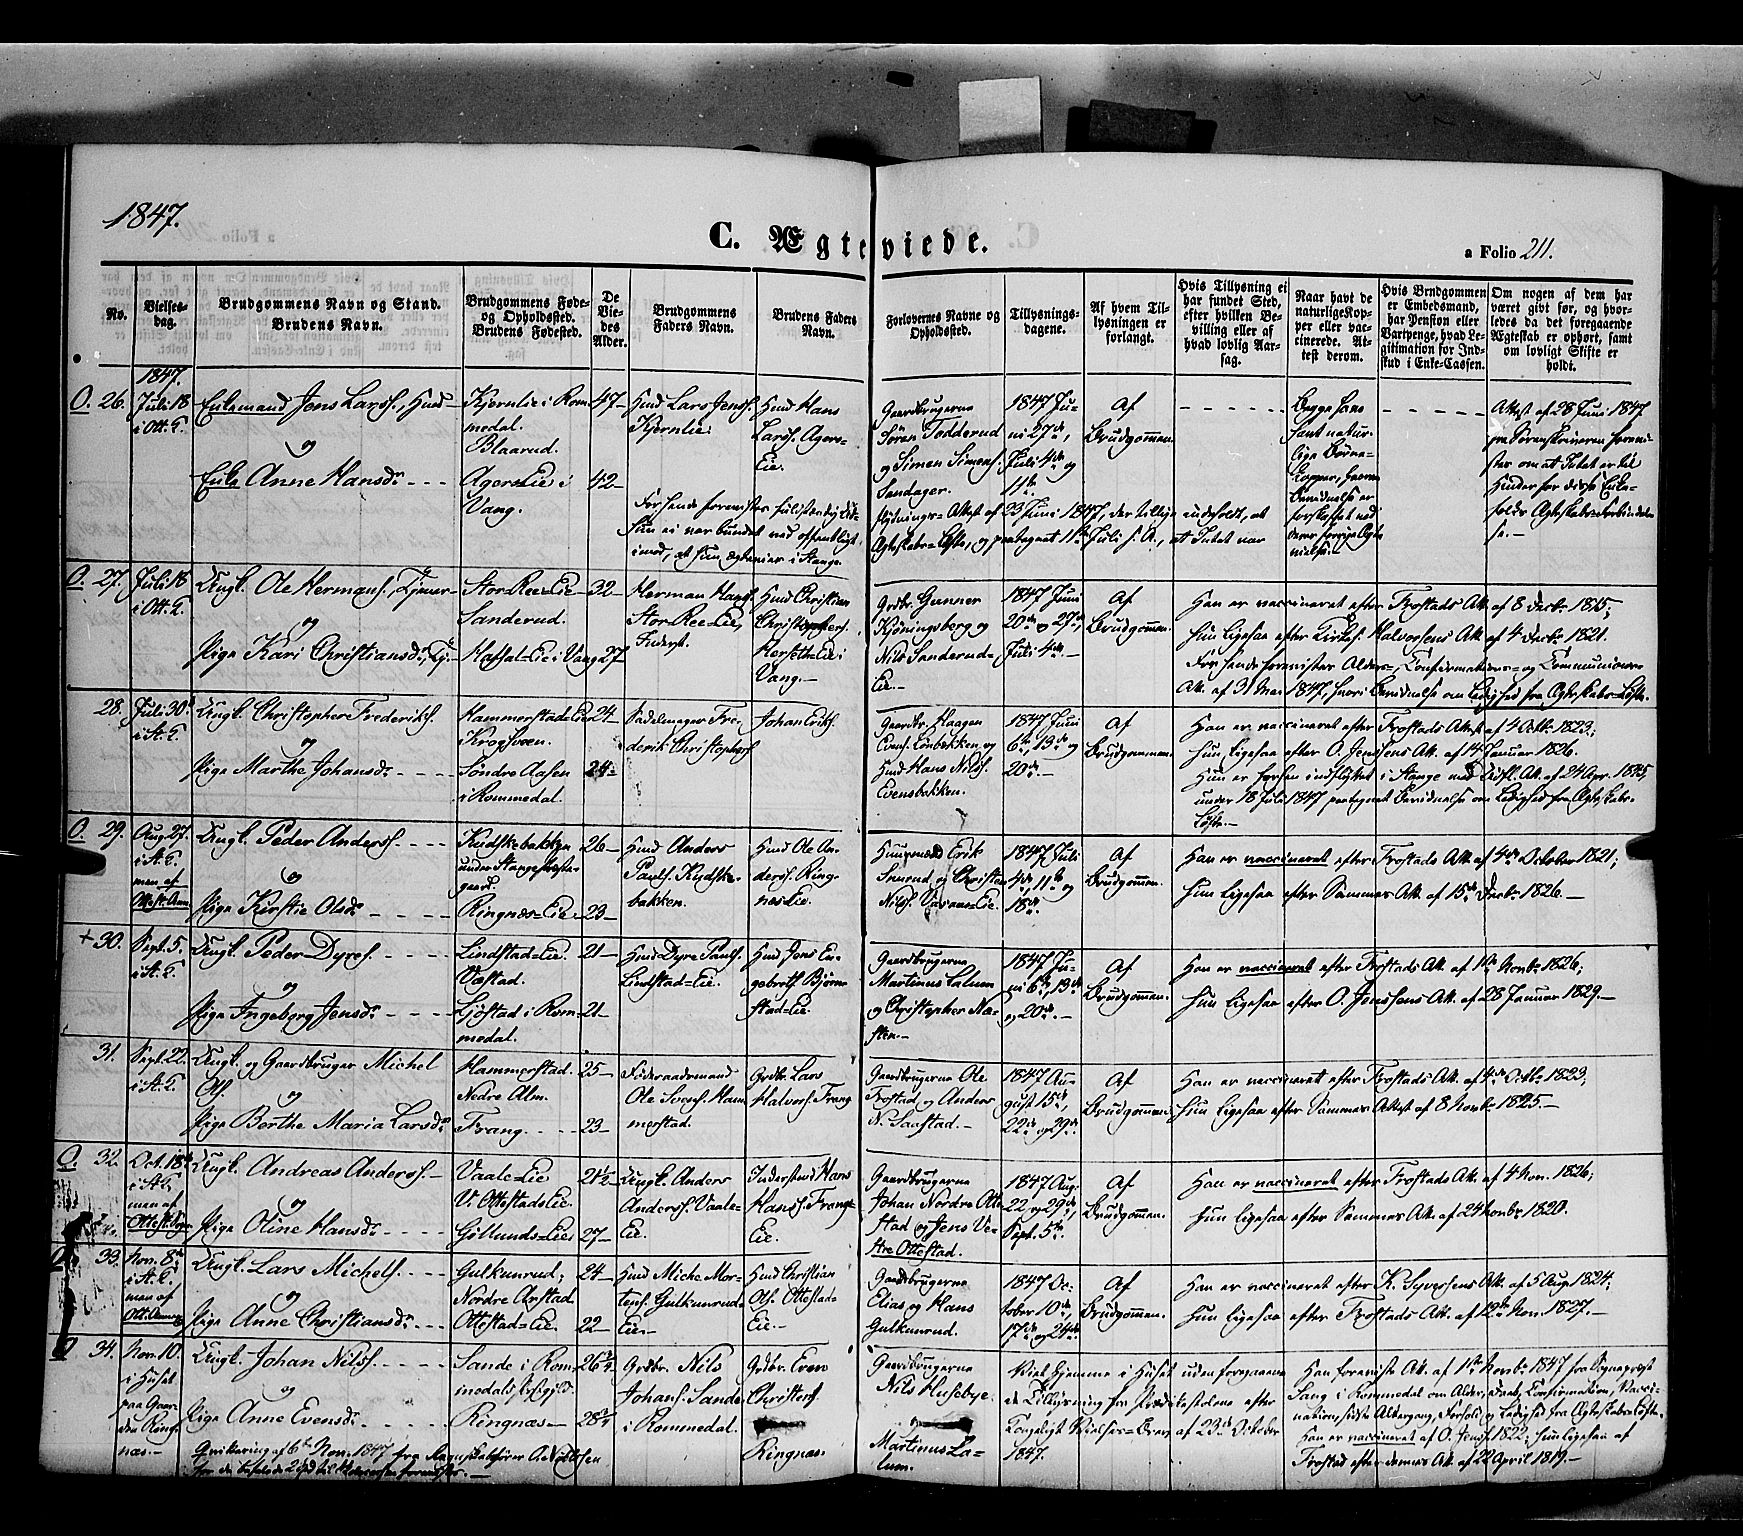 1847.
C. Ægteviede.
a Folio 211.
No.
Vielses-
dag.
Brudgommens Navn og Stand.
Brudens Navn.
Brudgommens Føde-
og Opholdsted.
Brudens Fødested.
De
Vie-
des
Alder.
Brudgommens
Faders Navn.
Brudens Faders
Navn.
Forlovernes Navne og
Opholdsted.
Tillysnings-
dagene.
Af hvem Til-
lysningen er
forlangt.
Hvis Tillysning ei
har fundet Sted,
efter hvilken Be-
villing eller af
hvad lovlig Aar-
sag.
Naar havt de
naturlige Kop-
per eller vac-
cinerede. At-
test derom.
Hvis Brudgommen
er Embedsmand,
har Pension eller
Vartpenge, hvad Le-
gitimation for Ind-
skud i Enke-Cassen.
Om nogen af dem har
været givt før, og hvor-
ledes da det foregaaende
Ægteskab er ophørt, samt
om lovligt Skifte er
holdt.
1847.
O. 26.
Juli 18
i Ott. K.
Enkemand Jens Larss., Huus-
og
Enke Anne Hansd.
Kjernlie i Rom-
medal.
Blaarud.
Agers Eie i
Vang.
47
42
Huusd. Lars Jenss.
Kjernlie.
Huusd. Hans
Larss. Agers-
Eie.
Gaardbrugerne
Søren Todderud
og Simen Simens.
Sandager.
1847 Ju-
ni 27de,
Juli 4de og
11te
Af
Brudgommen.
Begge have
havt natur-
lige Børne-
kopper,
Attest af 28 Juni 1847
fra Sorenskriveren
ster om at Intet er til
Hinder for disse Enke-
folks Ægteskabs-Forbindel-
se.
Flytnings-Attest af 23 Juni 1847, der tillige indeholdt, at
Hun ei var bundet ved offentligt
Ægteskabs-Løfte, og paategnet 11te Juli s. A., at Intet var
imod, at hun ægtevies i Stange.
O. 27.
Juli 18
i Ott. K.
Ungk. Ole Hermans., Tjener
og
Pige Kari Christiansd., Tj.
Stor-Ree-Eie
Sanderud.
Hafsal-Eie i Vang
32
27
Herman Hans.
Stor-Ree-Eie,
Huusd. Christian
Christophers.
Herseth-Eie i
Vang.
Grdbr. Gunner
Kjøningsberg og
Nils Sanderud-
Eie.
1847 Juni
20de og 27de,
Juli 4de.
Af
Brudgommen.
Han er vaccineret efter Frostads Att. af 8 Decbr. 1815;
Hun ligesaa efter Kirkes. Halvorsens Att. af 4 Decbr. 1821.
For hende forevistes Alders-, Confirmations- og Communions-
Att. af 31 Mai 1847, hvori Bevidnelse om Ledighed fra Ægteskabs-Løfte.
28.
Juli 30te
i St. K.
Ungk. Christopher Frederiks.
og
Pige Marthe Johansd.
Hammerstad-Eie
Krogsveen.
Søndre Aasen
i Rommedal.
24
24
Sadelmager Fre-
derik Christophers.
Johan Eriks.
Gaardbr. Haagen
Evens. Lonbekken og
Huusd. Hans Nilss.
Evensbakken.
1847 Juni
6te, 13de og
20de.
Af
Brudgommen.
Han er vaccineret efter Frostads Attest af 4 Octbr. 1823;
Hun ligesaa efter O. Jenssens Att. af 14 Januar 1826.
Hun er forhen indflyttet i Stange med Udfl. Att. af 24 Apr. 1845,
under 18 Juli 1847 paategnet Bevidnelse om Ledighed fra Ægteskabs-
Løfte.
O. 29.
Aug. 27.
i St. K.
men af
Ungk. Peder Anderss.
og
Pige Kirstie Olsd.
Kudskebakken
under Stange Præste-
gaard.
Ringnæs-Eie
26
23
Huusd. Anders
Pauls. Kudske-
bakken.
Huusd. Ole An-
derss. Ring-
næs Eie.
Huusmænd Erik
Snurud og Christen
Nilss. Eie.
1847 Juli
4de, 11te og
18de.
Af
Brudgommen.
Han er vaccineret efter Frostads Att. af 4de October 1821;
Hun ligesaa efter Sommers Att. af 15de Decbr. 1826.
+ 30.
Sept. 5.
i St. K.
Ungk. Peder Dyres.
og
Pige Ingeborg Jensd.
Lindstad-Eie.
Væstad.
Ljøstad i Rom-
medal.
21
21
Huusd. Dyre Pauls.
Lindstad-Eie.
Huusd. Jens En-
gebrets. Bjørn-
stad-Eie.
Gaardbrugerne
Martinus Lalum
og Christopher Næ-
sten.
1847 Ju-
ni 6te, 13de
og 20de.
Af
Brudgommen.
Han er vaccineret efter Frostads Att. af 1te Novbr. 1826;
Hun ligesaa efter O. Jenssens Att. af 28 Januar 1829.
31.
Sept. 22.
i St. K.
Ungk. og Gaardbruger Michel
Ols.
og
Pige Berthe Maria Larsd.
Hammerstad.
Nedre Alm.
Frang.
25
23
Føderaadsmand
Ole Svens. Ham-
merstad.
Grdbr. Lars
Halvors. Frang
Gaardbrugerne Ole
Frostad og Anders
N. Saastad.
1847 Au-
gust 15de,
22de og 29de.
Af
Brudgommen.
Han er vaccineret efter Frostads Att. af 4de Octbr. 1823;
Hun ligesaa efter Sommers Attest af 8 Novbr. 1825.
O. 32.
Oct. 18de
i St. K.
men af
Ottest. Sogn
Ungk. Andreas Anderss.
og
Pige Oline Hansd.
Vaale-Eie
V. Ottestads Eie.
Gillunds-Eie
21½
27
Ungk. Anders
Anderss. Vaale-
Eie.
Inderstmd. Hans
Hans. Frang-
Eie.
Gaardbrugerne
Johan Nordre Otte-
stad og Jens Ve-
stre Ottestad.
1847 Aug.
22 og 29de,
Sept. 5te.
Af
Brudgommen.
Han er vaccineret efter Frostads Att. af 4 Nov. 1826;
Hun ligesaa efter Sommers Att. af 24 Novbr. 1820.
O. 33.
Nov. 8de
i St. K.
men af
Ungk. Lars Michels.
og
Pige Anne Christiansd.
Gulkunrud;
Nordre Arstad.
Ottestad-Eie.
24
22
Huusd. Miche. Mor-
tens. Gulkunrud-
Eie.
Huusd. Christian
Ols. Ottestad-
Eie.
Gaardbrugerne
Elias og Hans
Gulkunrud.
1847 Oc-
tober 10de,
17de og 24de.
Af
Brudgommen.
Han er vaccineret efter K. Syversens Att. af 5 Aug. 1824.
Hun ligesaa efter Frostads Att. af 12te Nov. 1827.
O 34.
Nov. 10.
i Huset
paa Gaar-
den Ring-
næs.
Ungk. Johan Nilss.
og
Pige Anne Evensd.
Sande i Rom-
medals Præstegjeld.
Ringnæs
26
28
Grdbr. Nils
Johans. Sande
i Rommedal.
Grdbr. Even
Christens.
Ringnæs.
Gaardbrugerne
Nils Husebye.
Martinus La-
lum.
Viet hjemme i Huset uden foregaaen-
de Tillysning fra Prædikestolen efter
Kongeligt Vielses-Brev af 23de October
1847.
Han foreviste Att. af 1te Novbr. 1847 fra Sognepræst
Sang i Rommedal om Alder, Daab, Confirmation, Vacci-
nation, sidste Altergang, Forhold og Ledighed fra Ægteskabs-Løfte.
Han er vaccineret af O. Jenss. 1822; hun ligesaa af
Frostad efter dennes Att. af 22 April 1819.
Qvittering af 6te Nov. 1847 fra